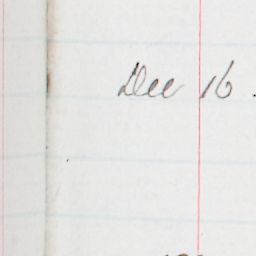 Dec 16